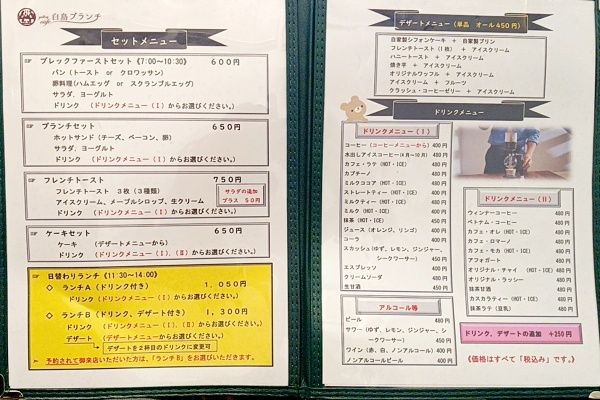 白鳥ブランチ
セットメニュー
☞ ブレックファーストセット《7:00~10:30》 600円
パン(トースト or クロワッサン)
卵料理(ハムエッグ or スクランブルエッグ)
サラダ、ヨーグルト
ドリンク (ドリンクメニュー(Ⅰ)からお選びください。)
☞ ブランチセット 650円
ホットサンド(チーズ、ベーコン、卵)
サラダ、ヨーグルト
ドリンク (ドリンクメニュー(Ⅰ)からお選びください。)
☞ フレンチトースト 750円
フレンチトースト 3枚(3種類)
アイスクリーム、メープルシロップ、生クリーム
ドリンク (ドリンクメニュー(Ⅰ)からお選びください。)
サラダの追加
プラス 50円
☞ ケーキセット 650円
ケーキ (デザートメニューから)
ドリンク (ドリンクメニュー(Ⅰ)、(Ⅱ)からお選びください。)
☞ 日替わりランチ《11:30~14:00》
◇ ランチA(ドリンク付き) 1,050円
ドリンク(ドリンクメニュー(Ⅰ)からお選びください。)
◇ ランチB(ドリンク、デザート付き) 1,300円
ドリンク (ドリンクメニュー(Ⅰ)、(Ⅱ)からお選びください。)
デザート (デザートメニューからお選びください。)
デザートを2杯目のドリンクに変更可
予約されて御来店いただいた方は、「ランチB」をお選びいただきます。
デザートメニュー(単品 オール450円)
自家製シフォンケーキ + 自家製プリン
フレンチトースト(1枚) + アイスクリーム
ハニートースト + アイスクリーム
焼き芋 + アイスクリーム
オリジナルワッフル + アイスクリーム
アイスクリーム + フルーツ
クラッシュ・コーヒーゼリー + アイスクリーム
ドリンクメニュー
ドリンクメニュー(Ⅰ)
コーヒー(コーヒーメニューから) 400円
水出しアイスコーヒー(4月~10月) 480円
カフェ・ラテ(HOT・ICE) 400円
カプチーノ 400円
ミルクココア(HOT・ICE) 400円
ストレートティー(HOT・ICE) 400円
ミルクティー(HOT・ICE) 400円
ミルク(HOT・ICE) 400円
抹茶(HOT) 450円
ジュース(オレンジ、リンゴ) 400円
コーラ 400円
スカッシュ(ゆず、レモン、ジンジャー、
シークワーサー) 450円
エスプレッソ 400円
クリームソーダ 480円
生甘酒 450円
アルコール等
ビール 480円
サワー(ゆず、レモン、ジンジャー、シ
ークワーサー) 450円
ワイン(赤、白、ノンアルコール) 400円
ノンアルコールビール 400円
ドリンクメニュー(Ⅱ)
ウィンナーコーヒー 480円
ベトナム・コーヒー 480円
カフェ・オレ(HOT・ICE) 480円
カフェ・ロマーノ 480円
カフェ・モカ(HOT・ICE) 480円
アフォガート 480円
オリジナル・チャイ (HOT・ICE) 480円
オリジナル・ラッシー 480円
抹茶甘酒 480円
カスカラティー(HOT・ICE) 480円
抹茶ラテ(豆乳) 480円
ドリンク、デザートの追加 +250円
《価格はすべて「税込み」です。》